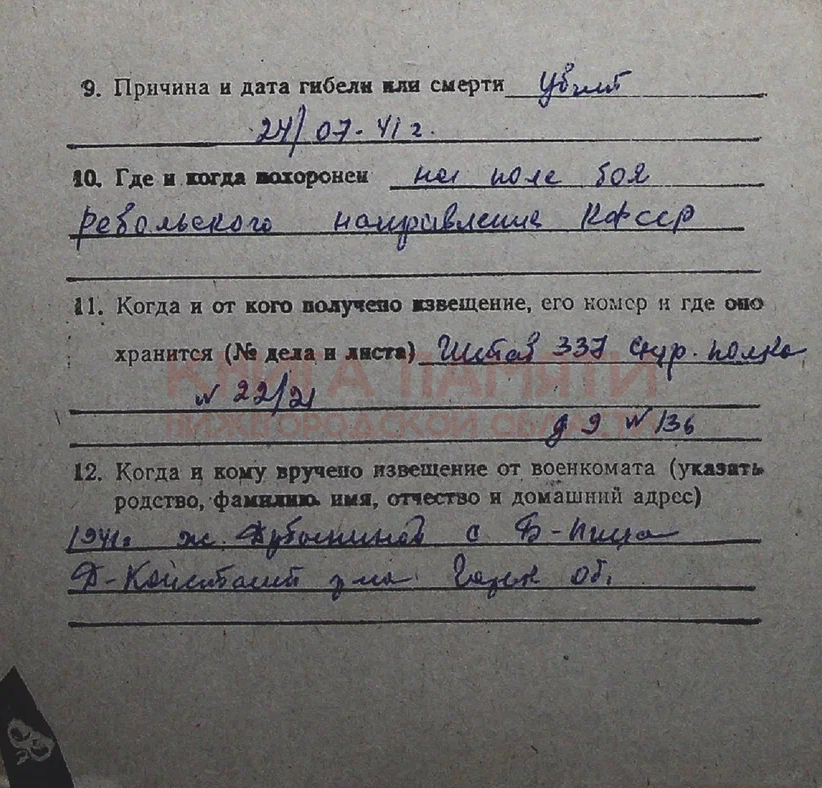 9. Причина и дата гибели или смерти убит
24/07-41 г.
10. Где и когда похоронен на поле боя
Ребольского направления КФССР
11. Когда и от кого получено извещение, его номер и где оно
хранится (№ дела и листа) Штаб 337 стр. полка
КНИГА ПАМЯТИ
N 22/21
НИЖЕГОРОДСКОЙ ОБЛАСТИ
д 9 N 136
12. Когда и кому вручено извещение от военкомата (указать
родство, фамилию, имя, отчество и домашний адрес)
1941г ж. с Б-Пица
Д-Конст Об.